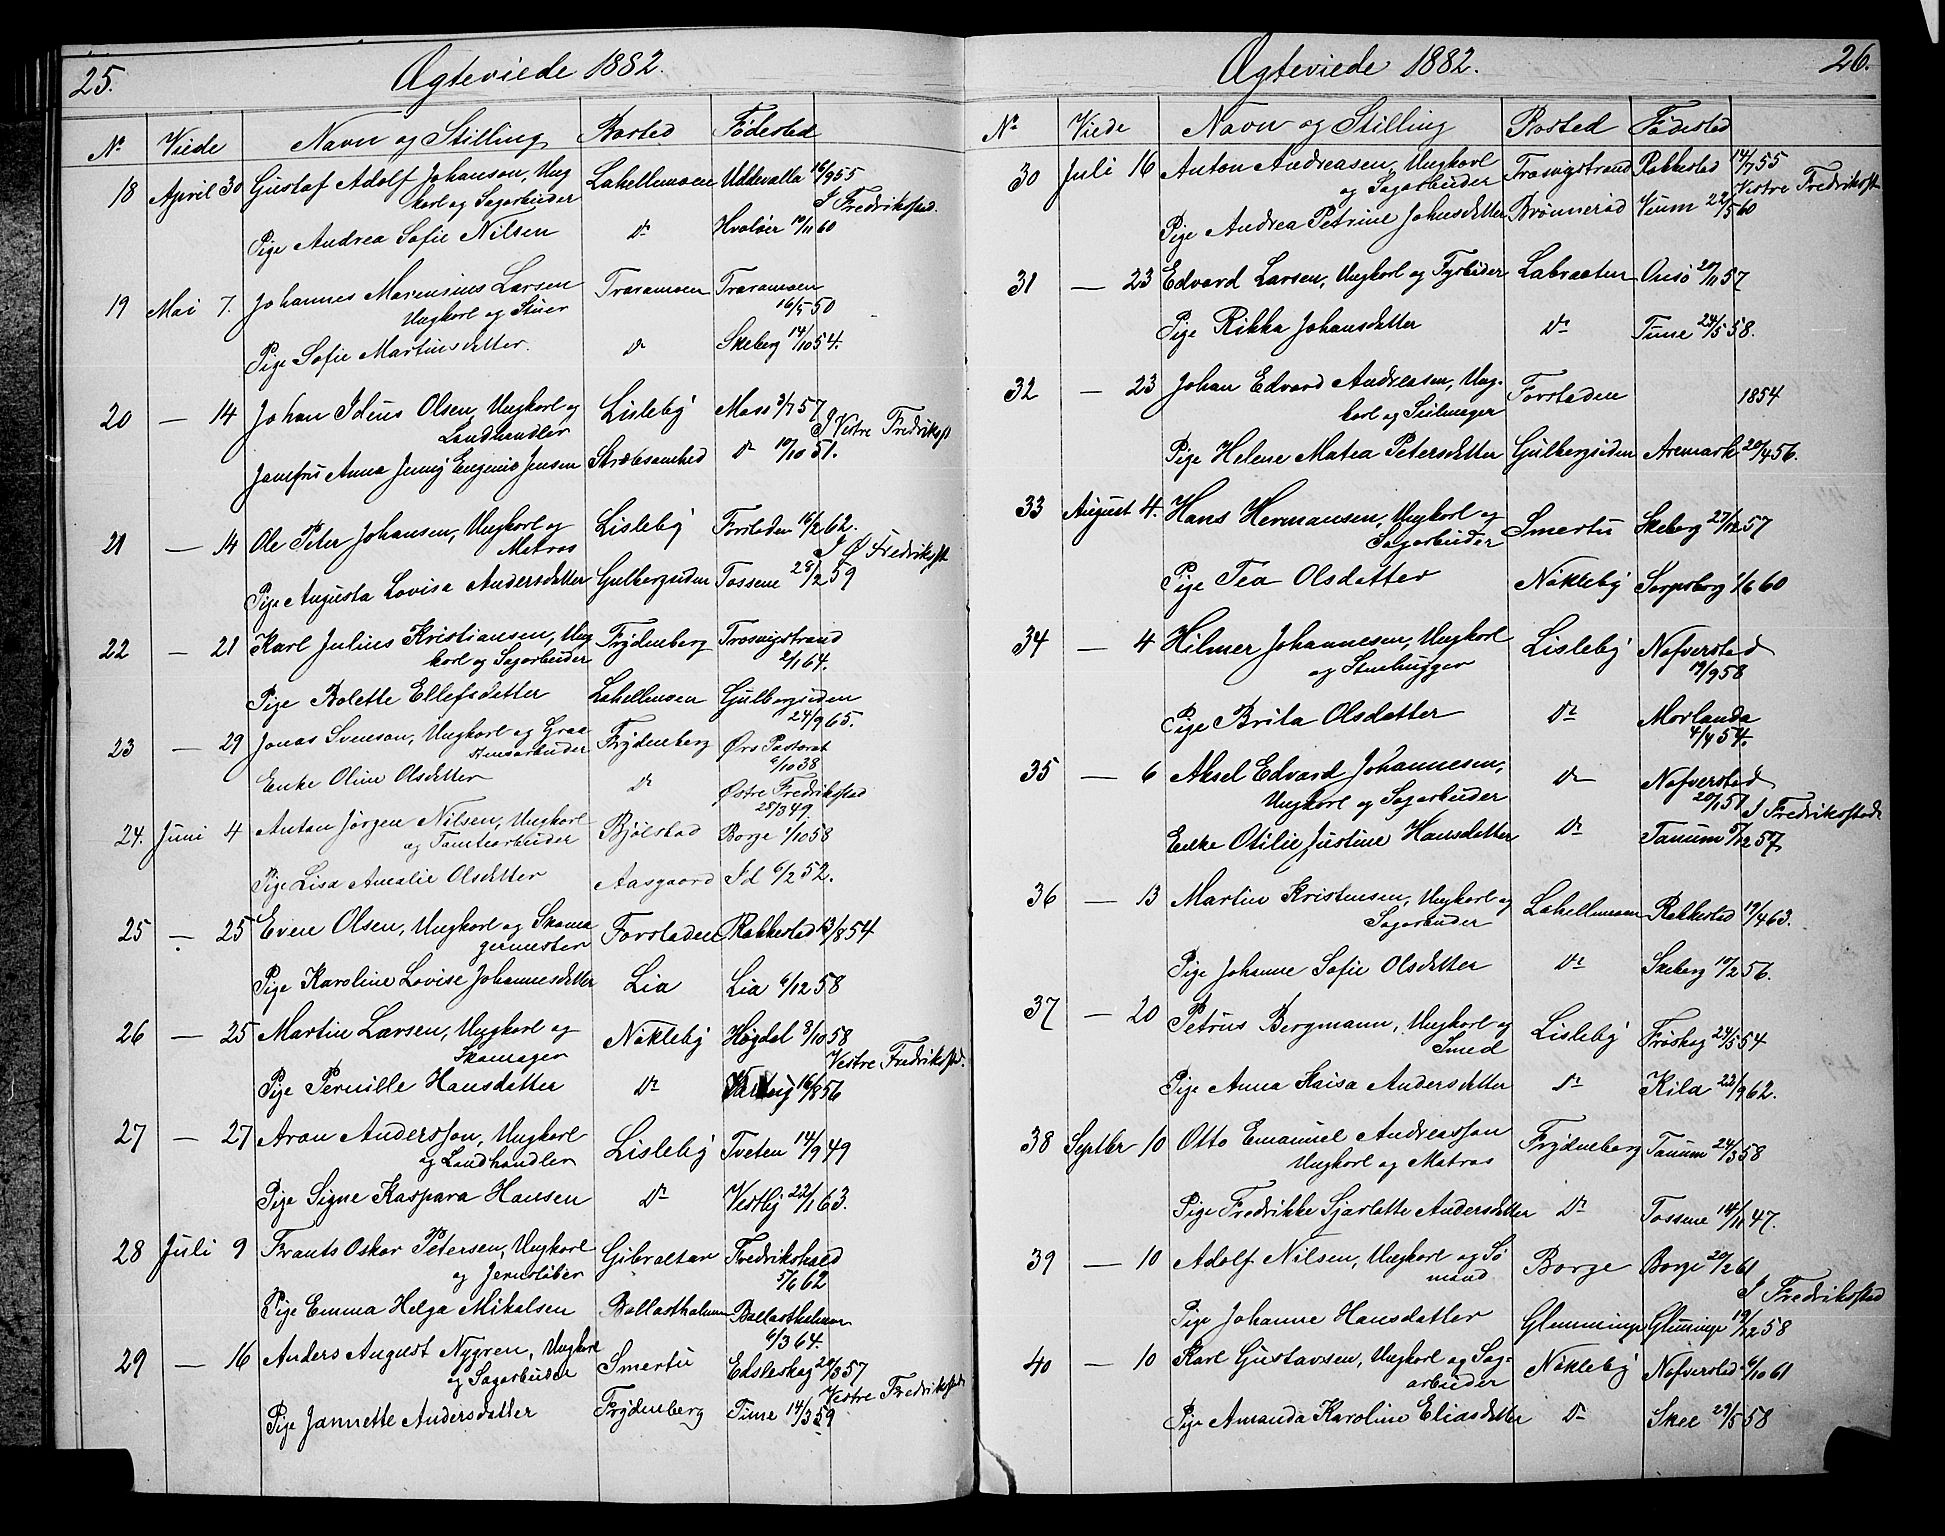 25. Ægteviede 1882.
No Viede Navn og Stilling Bosted Fødested
18 April 30 Gustaf Adolf Johanson, Ung Lahellmoen Uddevalla 16/9 55
karl og Sagarbeider I Fredriksstad.
Pige Andrea Sofie Nilsen Do Hvaløer 19/11 60
19 Mai 7. Johannes Marensius Larsen Traramoen Traramoen
Ungkarl og Stuer 16/5 50
Pige Sofie Martinsdatter. Do Skeberg 14/10 54.
20 — 14 Johan Idius Olsen, Ungkarl og Lisleby Moss 3/7 57
Landhandler I Vestre Fredriksst
Jomfru Anna Jenny Eugenie Jensen Stræbsomhed Do 19/10 51.
21 — 14 Ole Peter Johansen, Ungkarl og Lisleby Forstaden 16/2 62.
Matros I Ø Fredriksst
Pige Augusta Lovise Andersdatter Gulbergsiden Tossene 28/2 59
22 — 21 Karl Julius Kristiansen, Ung Frydenberg Trosvigstrand
karl og Sagarbeider 2/1 64.
Pige Bolette Ellefsdatter Lahellmoen Gulbergsiden
24/9 65.
23 — 29 Jonas Svenson, Ungkarl og Graa Frydenberg Ørs Pastorat
stensarbeider 6/10 38
Enke Oline Olsdatter Do Østre Fredriksstad
28/3 49.
24. Juni 4 Anton Jörgen Nilsen, Ungkarl Bjölstad Borge 1/10 58
og Tomtearbeider
Pige Lisa Amalie Olsdatter Aasgaard Id 6/2 52.
25 — 25 Even Olsen, Ungkarl og Skoma Forstaden Rakkestad 13/8 54
germester
Pige Karoline Lovise Johannesdatter Lia Lia 6/12 58
26 — 25 Martin Larsen, Ungkarl og Nökleby Høgdal 8/10 58
Skomager Vestre Fredriksstad.
Pige Pernille Hansdatter Do 16/8 56
27 — 27 Aron Andersson, Ungkarl Lisleby Tveten 14/9 49
og Landhandler
Pige Signe Kaspara Hansen Do Vestby 22/1 63.
28 Juli 9 Frants Oskar Petersen, Ungkarl Gibraltar Fredrikshald
og Jernstöber 5/6 62
Pige Emma Helga Mikalsen Ballastholmen Ballastholmen
6/3 64.
29 — 16 Anders August Nygren, Ungkarl Smertu Edsleskog 20/3 57
og Sagarbeider Vestre Fredriksstad
Pige Jannette Andersdatter Frydenberg Tune 14/3 59
Ægteviede 1882. 26.
No Viede Navn og Stilling Bosted Fødested
30 Juli 16 Anton Andreasen, Ungkarl Trosvigstrand Rakkestad 14/7 55
og Sagarbeider Vestre Fredriksst
Pige Andrea Petrine Johnsdatter Brönnerød Veum 22/5 60
31 — 23 Edvard Larsen, Ungkarl og Fyrböder Labraaten Onsö 20/11 57
Pige Rikka Johansdatter Do Tune 24/5 58.
32 — 23 Johan Edvard Andreasen, Ung- Forstaden 1854
karl og Seilmager
Pige Helene Matea Petersdatter Gulbergsiden Aremark 20/4 56.
33 August 4. Hans Hermansen, Ungkarl og Smertu Skeberg 27/12 57
Sagarbeider
Pige Tea Olsdatter Nökleby Sarpsborg 1/6 60
34 — 4 Hilmer Johannesen, Ungkarl Lisleby Nafverstad
og Stenhugger 19/9 58
Pige Brita Olsdatter Do Morlanda
4/4 54.
35 — 6 Aksel Edvard Johannesen, Do Nafverstad
Ungkarl og Sagarbeider 20/1 51 I Fredriksstad
Enke Otilie Justine Hansdatter Do Tanum 5/12 57
36 — 13 Martin Kristensen, Ungkarl og Lahellmoen Rakkestad 19/4 63.
Sagarbeider
Pige Johanne Sofie Olsdatter Do Skeberg 10/2 56.
37 — 20 Petrus Bergmann, Ungkarl og Lisleby Fröskog 24/5 54
Smed
Pige Anna Kaisa Andersdatter Do Kila 22/9 62.
38 Septbr 10 Otto Emanuel Andreasson Frydenberg Tanum 24/3 58
Ungkarl og Matros
Pige Fredrikke Sjarlotte Andersdatter Do Tossene 14/11 47.
39 — 10 Adolf Nilsen, Ungkarl og Sö Borge Borge 20/2 61
mand I Fredriksstad
Pige Johanne Hansdatter Glemminge Glemminge 19/12 58
40 — 10 Karl Gustavsen, Ungkarl og Sag- Nökleby Nafverstad 6/10 61
arbeider
Pige Amanda Karoline Eliasdatter Do Skee 29/5 58